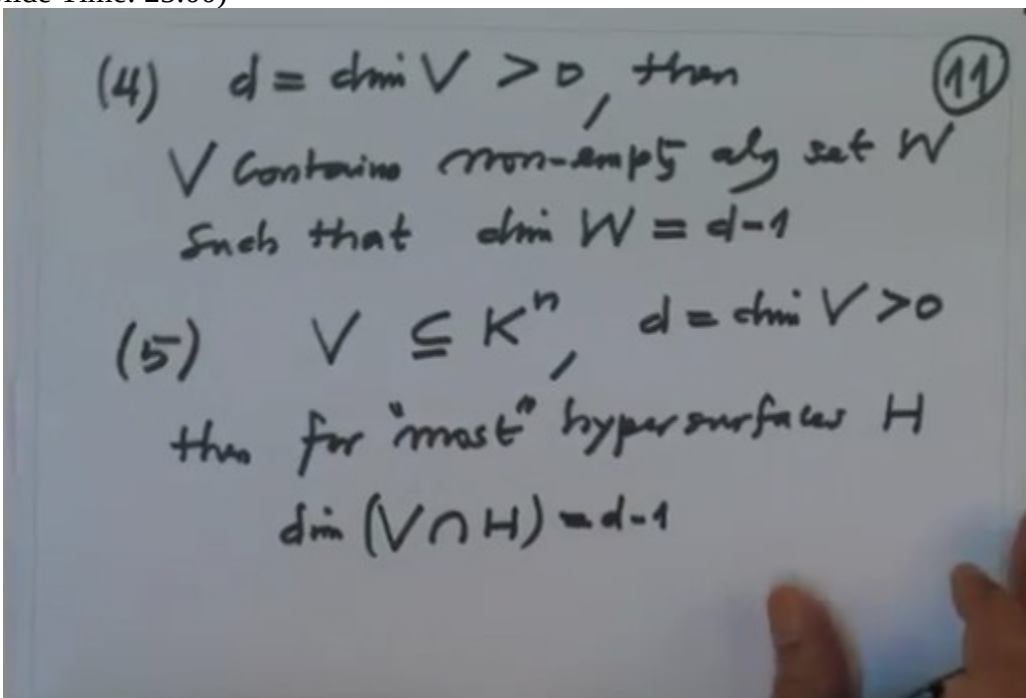 (4) d = dim V > 0, then
(11)
V contains non-empty alg set W
Such that dim W = d-1
(5) V ⊆ Kⁿ, d = dim V > 0
then for "most" hypersurfaces H
dim (V ∩ H) = d-1